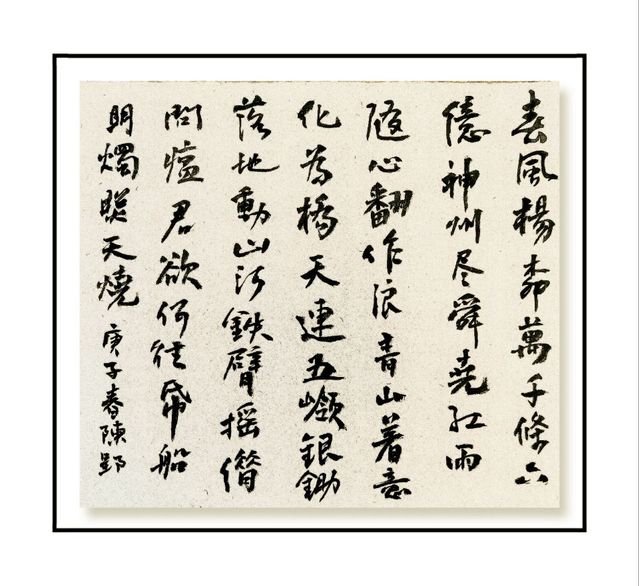 春風楊柳萬千條六
億神州尽舜堯红雨
随心翻作浪青山着意
化為橋天連五嶺銀鋤
落地動山河鉄臂摇借
問瘟君欲何往帋船
明燭照天燒庚子春陳